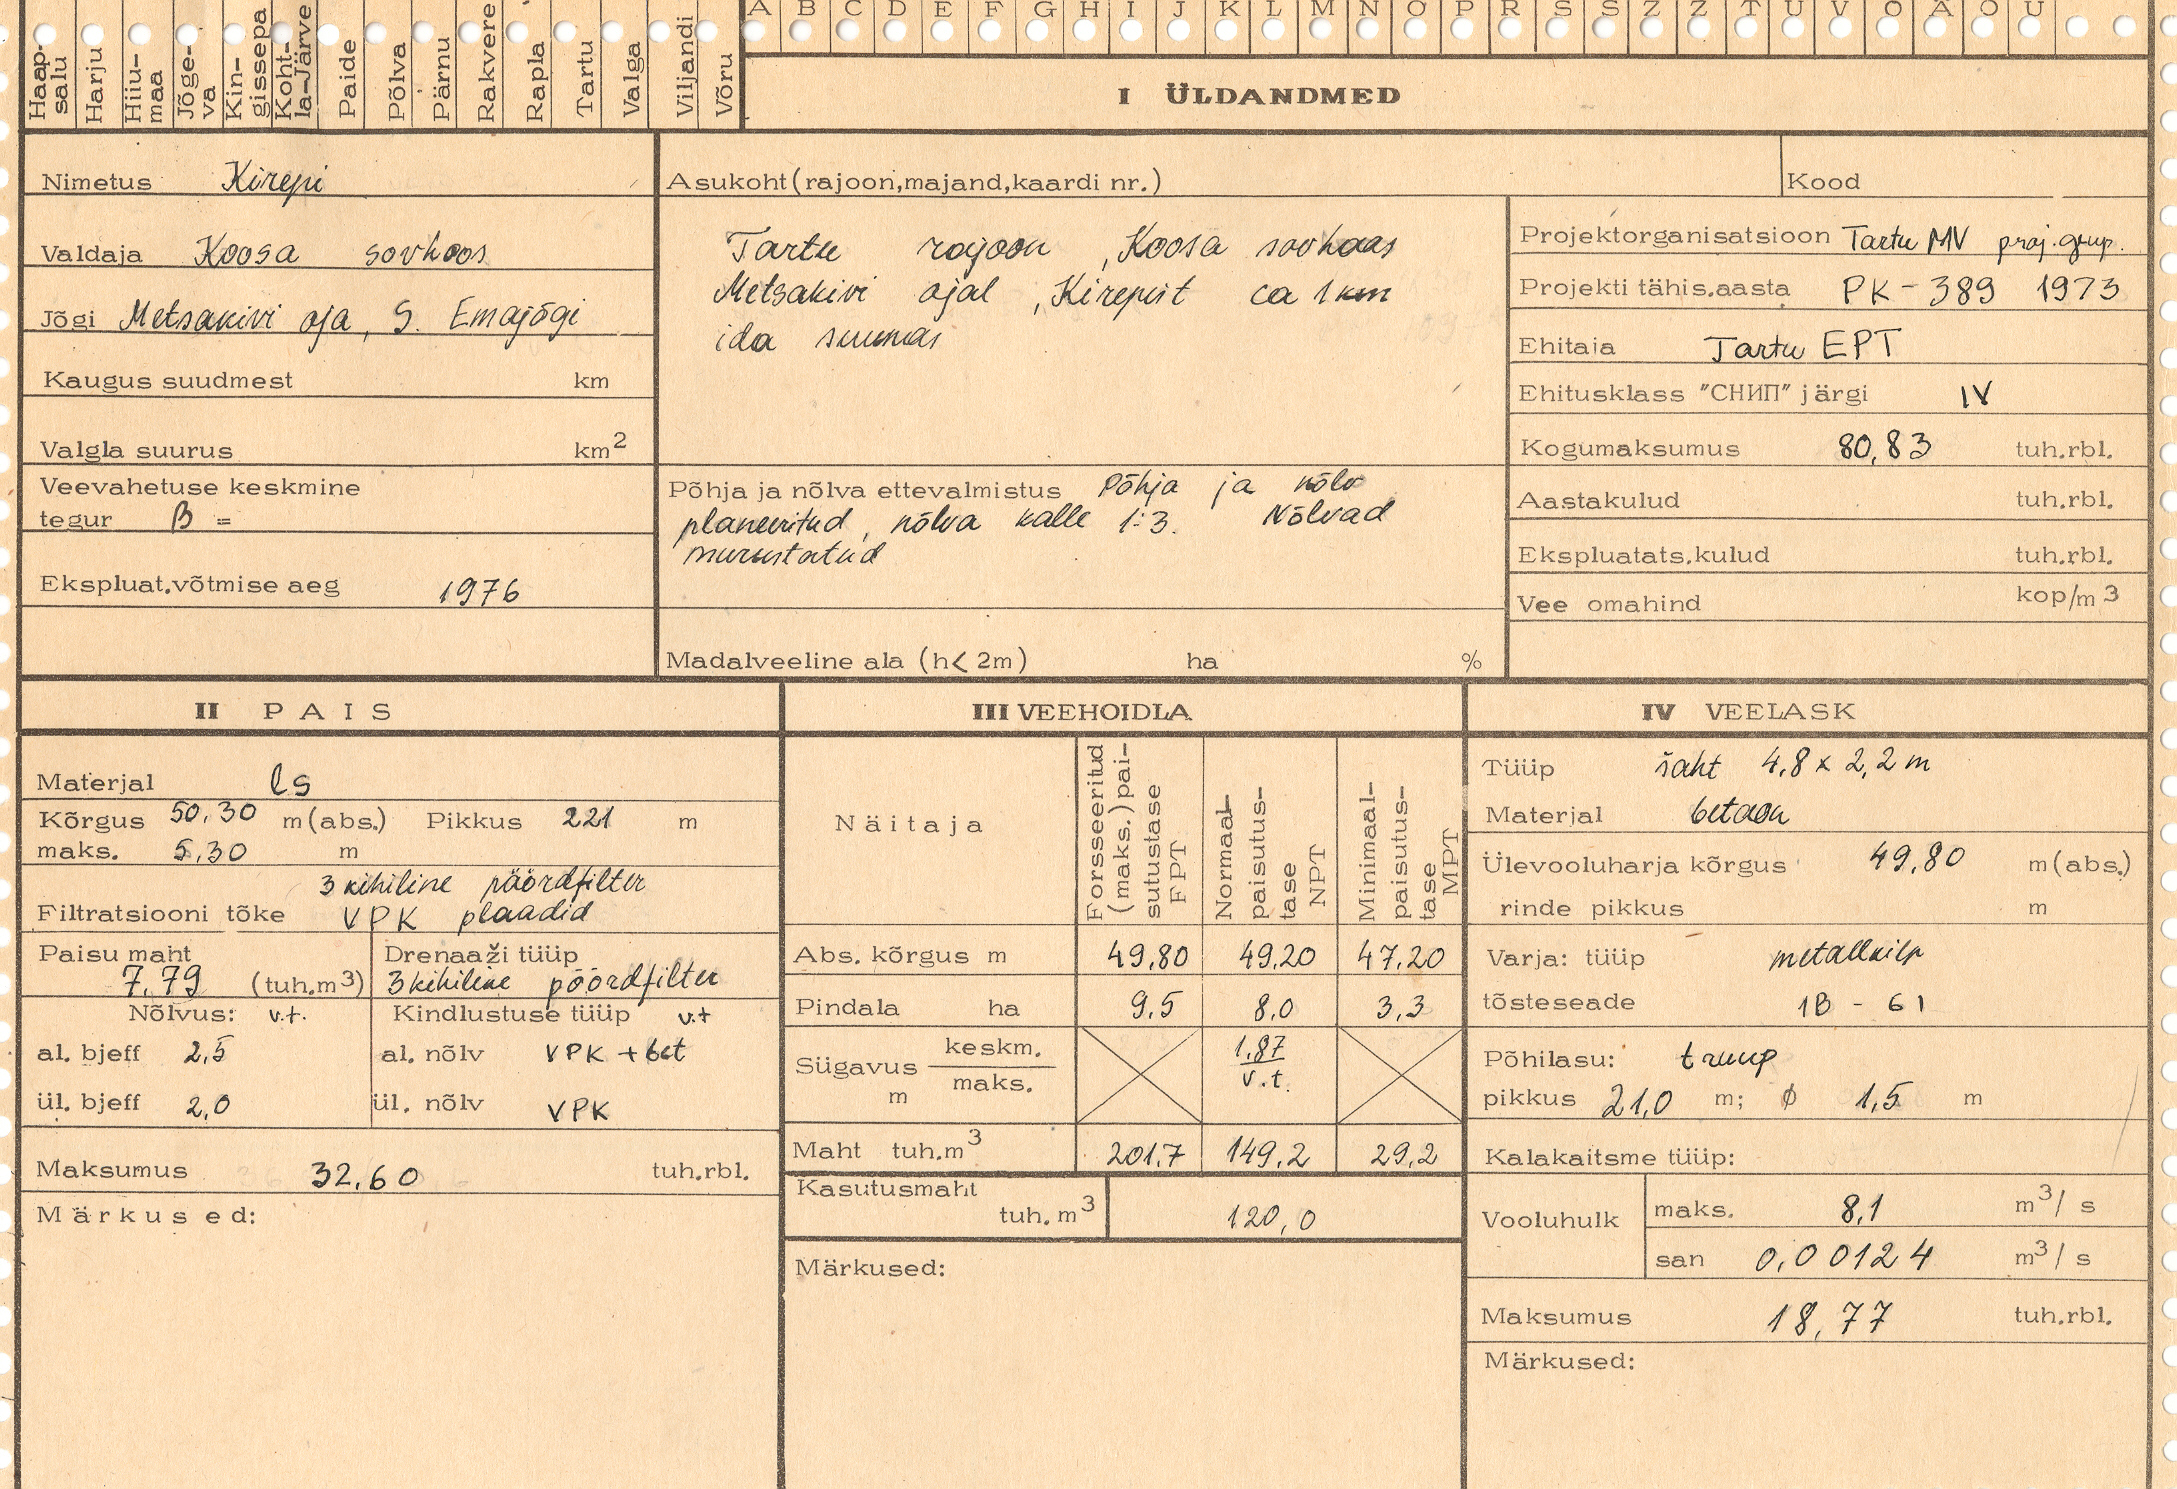 A B C D E F G H I J K L M N O P R S Š Z Ž T U V Õ Ä Ö Ü
Haap-
salu
Harju
Hiiu-
maa
Jõge-
va
Kin-
gissepa
Koht-
la-Järve
Paide
Põlva
Pärnu
Rakvere
Rapla
Tartu
Valga
Viljandi
Võru
I ÜLDANDMED
Nimetus Kirepi
Valdaja Koosa sovhoos
Jõgi Metsakivi oja, S. Emajõgi
Kaugus suudmest km
Valgla suurus km²
Veevahetuse keskmine
tegur β =
Ekspluat.võtmise aeg 1976
Asukoht (rajoon,majand,kaardi nr.)
Tartu rajoon, Koosa sovhoos
Metsakivi ojal, Kirepist ca 1 km
ida suunas
Põhja ja nõlva ettevalmistus Põhja ja nõlv
planeeritud, nõlva kalle 1:3. Nõlvad
murustatud
Madalveeline ala (h< 2m) ha %
Kood
Projektorganisatsioon Tartu MV proj. grup.
Projekti tähis.aasta PK-389 1973
Ehitaia Tartu EPT
Ehitusklass "СНИП" järgi IV
Kogumaksumus 80,83 tuh.rbl.
Aastakulud tuh.rbl.
Ekspluatats.kulud tuh.rbl.
Vee omahind kop/m³
II PAIS
Materjal ls
Kõrgus 50,30 m(abs.) Pikkus 221 m
maks. 5,30 m
3 kihiline pöördfilter
Filtratsiooni tõke VPK plaadid
Paisu maht
7,79 (tuh.m³)
Drenaaži tüüp
3 kihiline pöördfilter
Nõlvus: v.t. Kindlustuse tüüp v.t
al. bjeff 2,5 al. nõlv VPK + bet
ül. bjeff 2,0 ül. nõlv VPK
Maksumus 32,60 tuh.rbl.
Märkused:
III VEEHOIDLA
Näitaja
Forsseeritud
(maks.) pai-
sutustase
FPT
Normaal-
paisutus-
tase
NPT
Minimaal-
paisutus-
tase
MPT
Abs. kõrgus m 49,80 49,20 47,20
Pindala ha 9,5 8,0 3,3
Sügavus m keskm. 1,87
maks. v.t.
Maht tuh.m³ 201,7 149,2 29,2
Kasutusmaht
tuh. m³ 120,0
Märkused:
IV VEELASK
Tüüp šaht 4,8 x 2,2 m
Materjal betoon
Ülevooluharja kõrgus 49,80 m(abs.)
rinde pikkus m
Varja: tüüp metallkilp
tõsteseade 1B - 61
Põhilasu: truup
pikkus 21,0 m; ø 1,5 m
Kalakaitsme tüüp:
Vooluhulk maks. 8,1 m³/ s
san 0,00124 m³/ s
Maksumus 18,77 tuh.rbl.
Märkused: